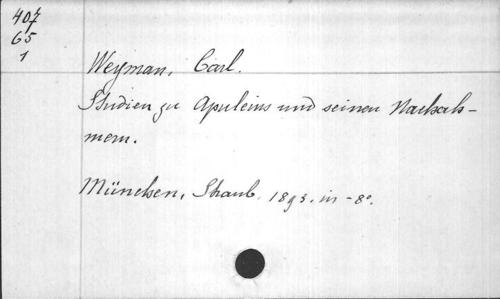 407
65
1
Weyman, Carl.
Studien zu Apuleius und seinen Nachah-
mern.
München, Straub. 1893. in -8°.